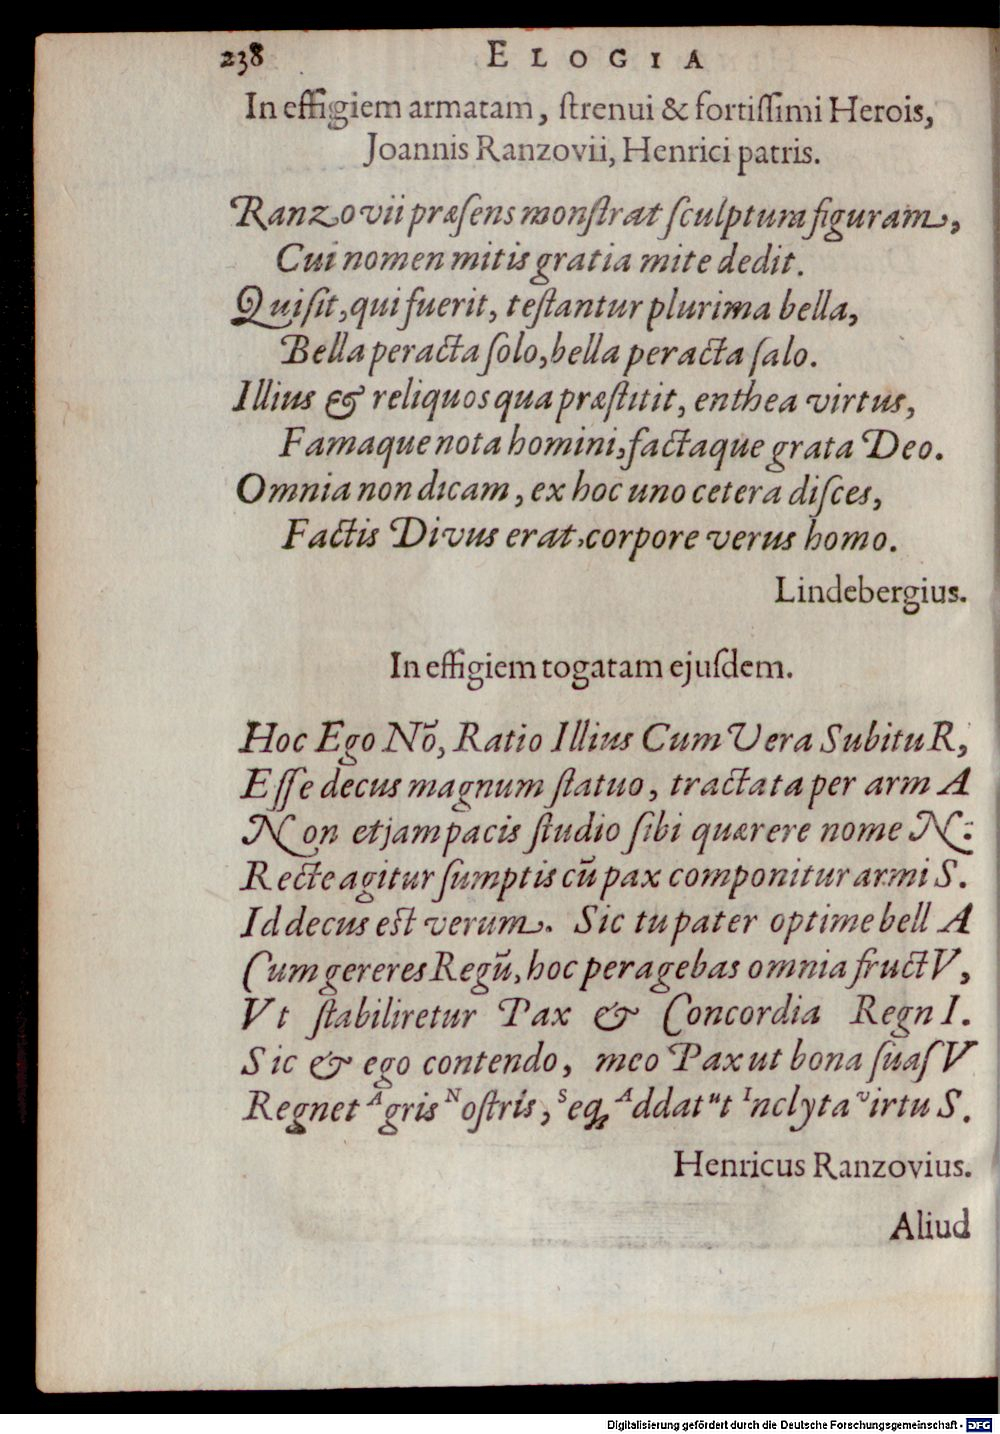 238 ELOGIA
In effigiem armatam, ſtrenui & fortiſſimi Herois,
Joannis Ranzovii, Henrici patris.
Ranzovii præſens monſtrat ſculptura figuram,
Cui nomen mitis gratia mite dedit.
Qui ſit, qui fuerit, teſtantur plurima bella,
Bella peracta ſolo, bella peracta ſalo.
Illius & reliquos qua præſtitit, enthea virtus,
Famaque nota homini, factaque grata Deo.
Omnia non dicam, ex hoc uno cetera diſces,
Factis Divus erat, corpore verus homo.
Lindebergius.
In effigiem togatam ejuſdem.
Hoc Ego Nō, Ratio Illius Cum Vera SubituR,
Eſſe decus magnum ſtatuo, tractata per arm A
Non etjam pacis ſtudio ſibi quærere nome N:
Recte agitur ſumptis cū pax componitur armi S.
Id decus eſt verum. Sic tu pater optime bell A
Cum gereres Regū, hoc peragebas omnia fructV,
Vt ſtabiliretur Pax & Concordia Regn I.
Sic & ego contendo, meo Pax ut bona ſuaſ V
Regnet Agris Noſtris, Seq; Addat Vt Inclyta VirtuS.
Henricus Ranzovius.
Aliud
Digitalisierung gefördert durch die Deutsche Forschungsgemeinschaft - DFG